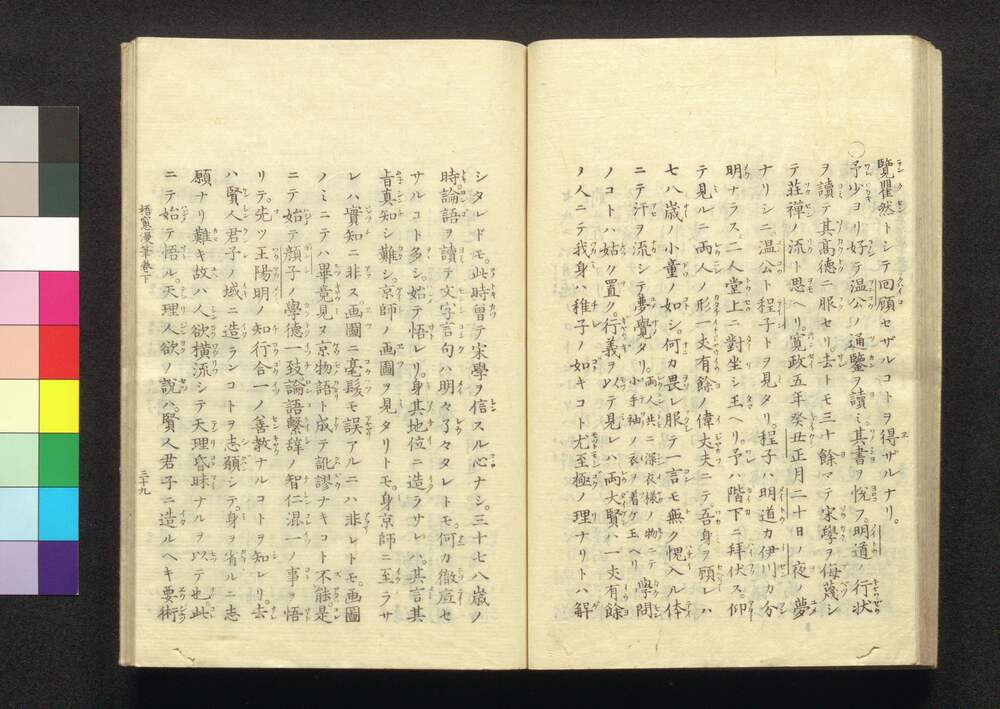 覽瞿然トシテ回顧セザルコトヲ得ザルナリ。
○予少ヨリ好テ温公ノ通鑒ヲ讀ミ其書ヲ悅フ。明道ノ行状
ヲ讀テ其高德ニ服セリ去トモ三十餘マテ宋學ヲ侮蔑シ
テ莊禪ノ流ト思ヘリ。寛政五年癸丑正月二十日ノ夜ノ夢
ナリシニ温公ト程子トヲ見タリ。程子ハ明道カ伊川カ分
明ナラス。二人堂上ニ對坐シ玉ヘリ予ハ階下ニ拜伏ス。仰
テ見ルニ兩人ノ形一丈有餘ノ偉丈夫ニテ吾身ヲ顧レハ
七八歳ノ小童ノ如シ。何カ畏レ服テ一言モ無ク愧入ル体
ニテ汗ヲ流シテ夢覺タリ。兩人共ニ深衣樣ノ物ニテ小手袖ノ衣ヲ着ケ玉ヘリ學問
ノコトハ姑ク置。行義ヲ以テ見レハ兩大賢ハ一丈有餘
ノ人ニテ我身ハ稚子ノ如キコト尤至極ノ理ナリトハ解
シタレドモ。此時曾テ宋學ヲ信スル心ナシ。三十七八歳ノ
時論語ヲ讀テ文字言句ハ明々了々タレトモ。何カ徹底セ
サルコト多シ。始テ悟レリ。身其地位ニ造ラサレハ。其言其
旨真知シ難シ。京師ノ画圖ヲ見タリトモ。身京師ニ至ラサ
レハ實知ニ非ス画圖ニ毫髮モ誤アルニハ非レトモ。画圖
ノミニテハ畢竟見ヌ京物語ト成テ訛謬ナキコト不能。是
ニテ始テ顔子ノ學德一致論語繫辞ノ智仁混一ノ事ヲ悟
リテ。先ツ王陽明ノ知行合一ノ善教ナルコトヲ知レリ。去
ハ賢人君子ノ域ニ造ランコトヲ志願シテ。身ヲ省ルニ志
願ナリ難キ故ハ人欲橫流シテ天理昏昧ナルヲ以テ也此
ニテ始テ悟ル。天理人欲ノ說ハ。賢人君子ニ造ルヘキ要術
梧窓漫筆卷下
三十九